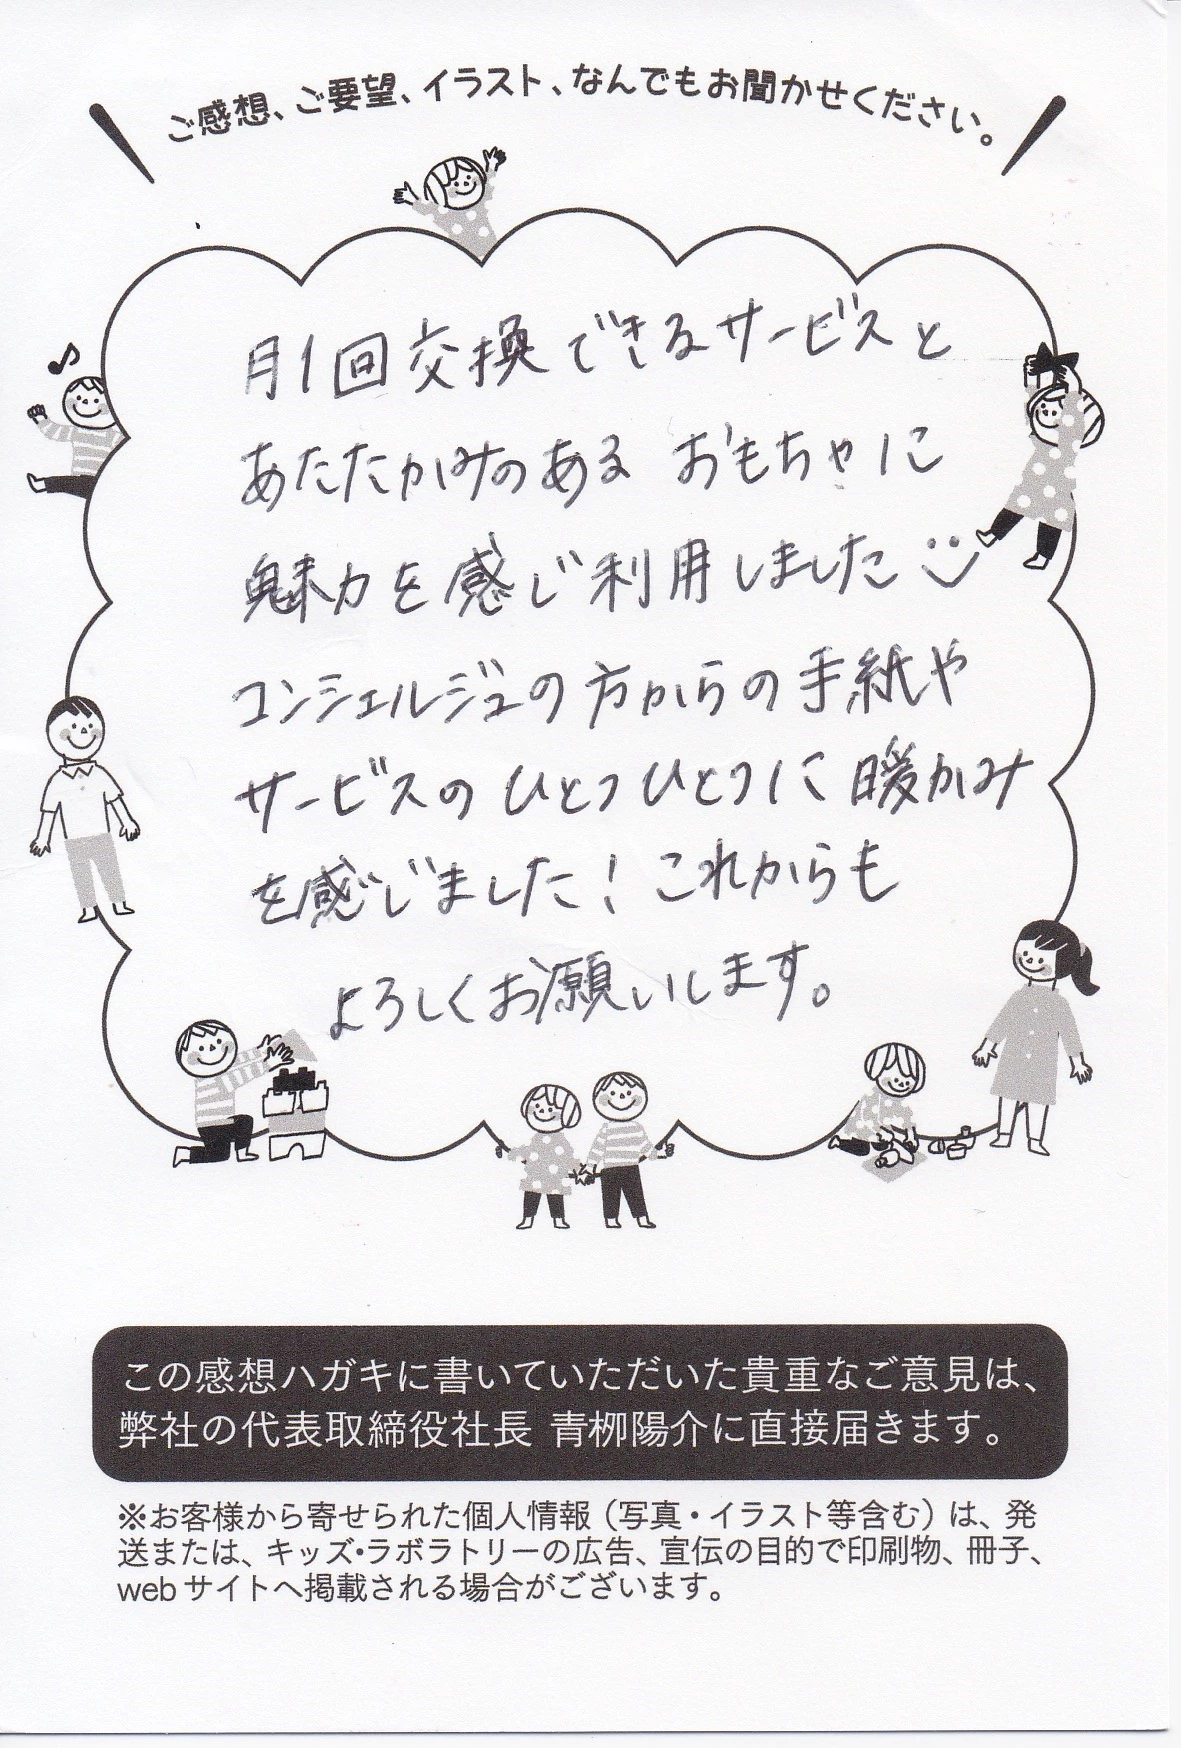 ご感想、ご要望、イラスト、なんでもお聞かせください。
月1回交換できるサービスと
あたたかみのある おもちゃに
魅力を感じ利用しました
コンシェルジュの方からの手紙や
サービスのひとつひとつに暖かみ
を感じました！これからも
よろしくお願いします。
この感想ハガキに書いていただいた貴重なご意見は、
弊社の代表取締役社長 青栁陽介に直接届きます。
※お客様から寄せられた個人情報（写真・イラスト等含む）は、発
送または、キッズ・ラボラトリーの広告、宣伝の目的で印刷物、冊子、
webサイトへ掲載される場合がございます。